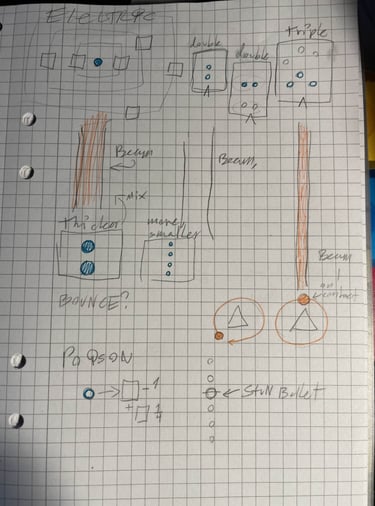 Electric
double
double
triple
Beam
Beam,
mix
thicker
many
smaller
Beam
on
contact
BOUNCE?
POISON
-1
Stun Bullet
+